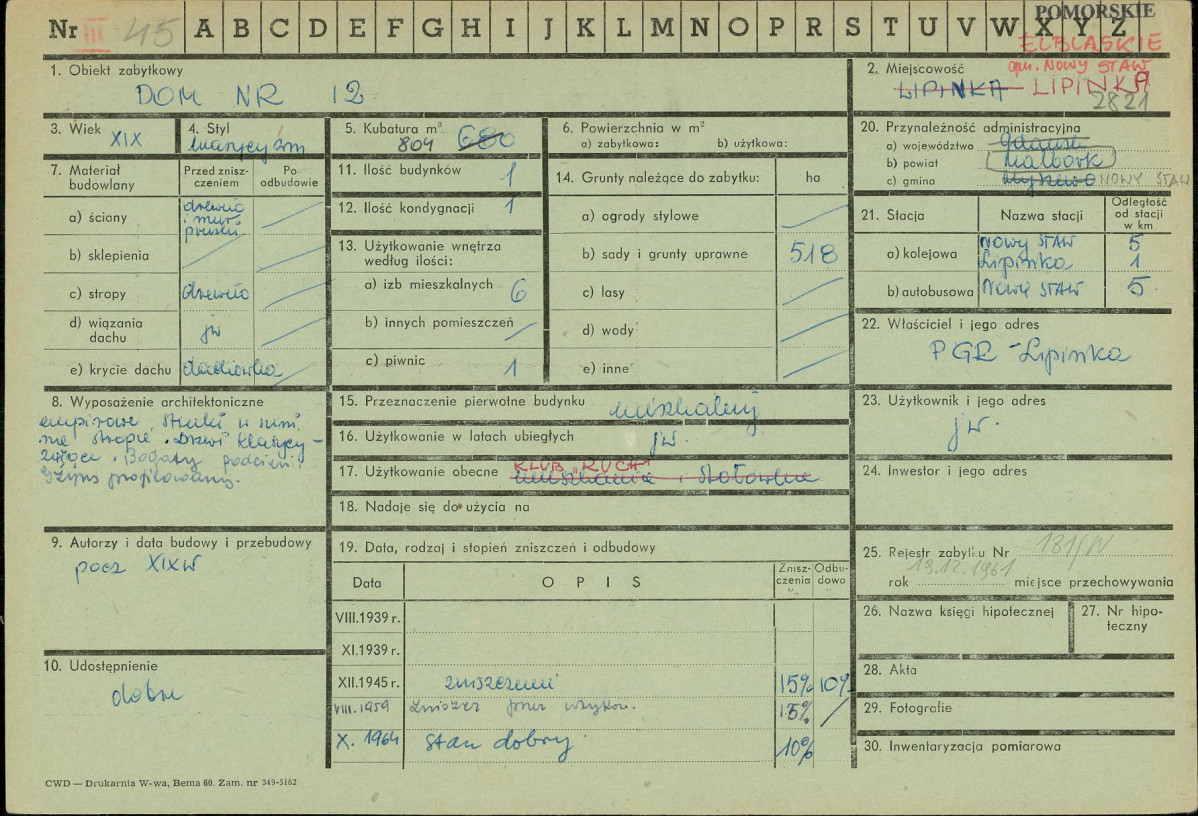 POMORSKIE
Nr III 45 A B C D E F G H I J K L M N O P R S T U V W X Y Z
ELBLĄSKIE
gm. NOWY STAW
1. Obiekt zabytkowy
DOM NR 12
2. Miejscowość
LIPINKA LIPINKA
2821
3. Wiek
XIX
4. Styl
klasycyzm
5. Kubatura m³
804 680
6. Powierzchnia w m²
a) zabytkowa: b) użytkowa:
20. Przynależność administracyjna
a) województwo Gdańsk
b) powiat Malbork
c) gmina Myszewo NOWY STAW
7. Materiał budowlany
Przed zniszczeniem
Po odbudowie
a) ściany drewno i mur pruski
b) sklepienia
c) stropy drewno
d) wiązania dachu jw
e) krycie dachu dachówka
11. Ilość budynków 1
12. Ilość kondygnacji 1
13. Użytkowanie wnętrza według ilości:
a) izb mieszkalnych 6
b) innych pomieszczeń
c) piwnic 1
14. Grunty należące do zabytku: ha
a) ogrody stylowe
b) sady i grunty uprawne 518
c) lasy
d) wody
e) inne
21. Stacja Nazwa stacji Odległość od stacji w km
a) kolejowa Nowy STAW 5
Lipinka 1
b) autobusowa Nowy STAW 5
22. Właściciel i jego adres
PGR - Lipinka
8. Wyposażenie architektoniczne
empirowe
stropie. Drzwi klasycy-
zujące. Bogaty podcień.
Gzyms profilowany.
15. Przeznaczenie pierwotne budynku mieszkalny
16. Użytkowanie w latach ubiegłych jw.
17. Użytkowanie obecne KLUB „RUCH"
mieszkanie i stołówka
18. Nadaje się do użycia na
23. Użytkownik i jego adres
jw.
24. Inwestor i jego adres
9. Autorzy i data budowy i przebudowy
pocz XIXw
10. Udostępnienie
dobre
19. Data, rodzaj i stopień zniszczeń i odbudowy
Data OPIS Zniszczenia % Odbudowa %
VIII.1939 r.
XI.1939 r.
XII.1945 r. zniszczenia 15% 10%
VIII.1959 15%
X. 1964 Stan dobry 10%
25. Rejestr zabytku Nr 181/N
19.12.1961
rok miejsce przechowywania
26. Nazwa księgi hipotecznej
27. Nr hipoteczny
28. Akta
29. Fotografie
30. Inwentaryzacja pomiarowa
CWD — Drukarnia W-wa, Bema 60. Zam. nr 349-5162